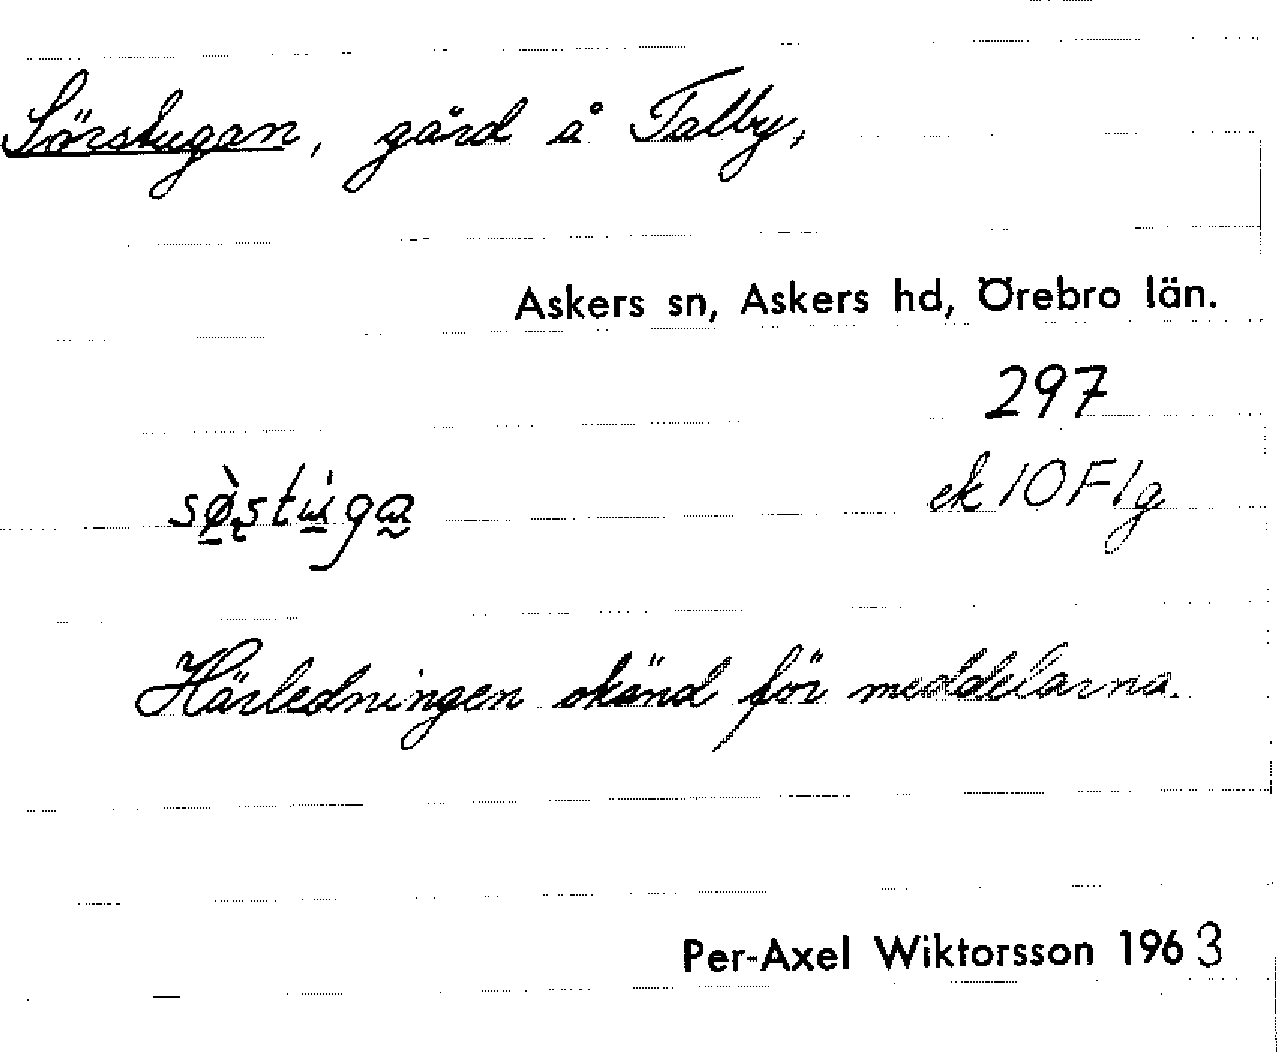 Sörstugan, gård å Talby,
Askers sn, Askers hd, Örebro län.
297
sø̀ʂtu̇ga
ek 10 F 1g
Härledningen okänd för meddelarna.
Per-Axel Wiktorsson 1963